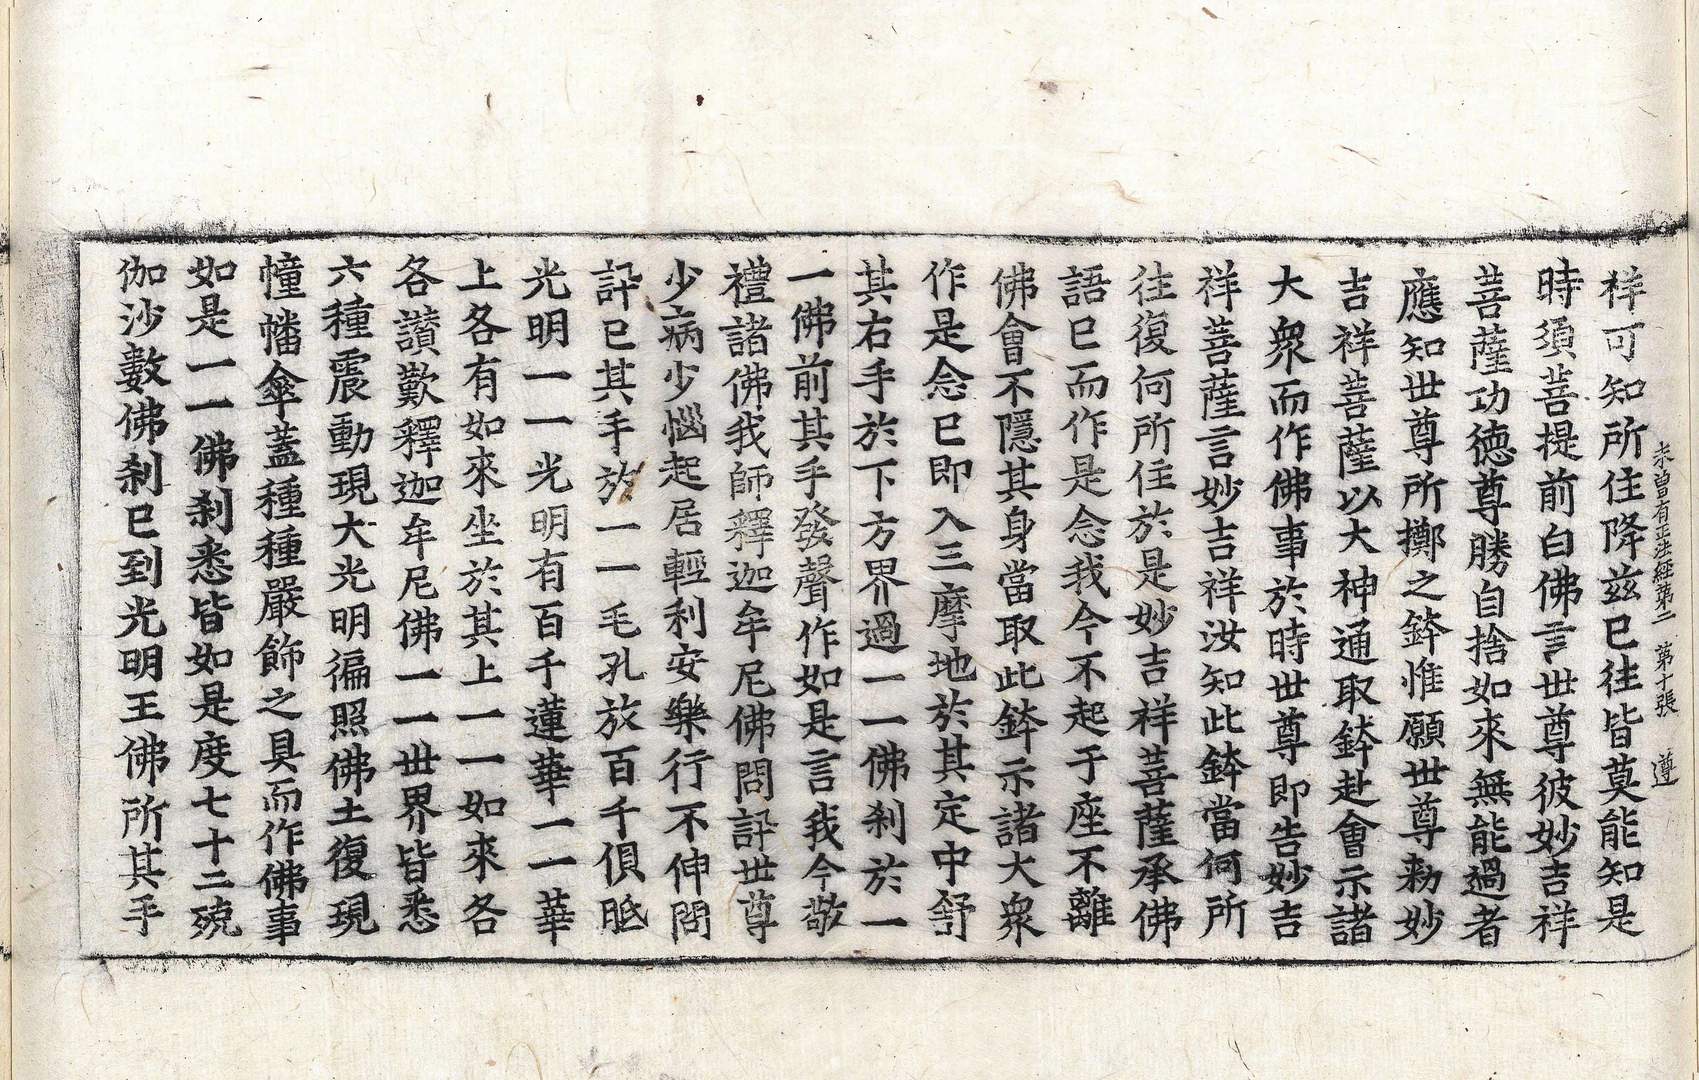 未曾有正法經第二　第十張　遵
祥可知所住降茲已往皆莫能知是
時須菩提前白佛言世尊彼妙吉祥
菩薩功德尊勝自捨如來無能過者
應知世尊所擲之鉢惟願世尊勑妙
吉祥菩薩以大神通取鉢赴會示諸
大衆而作佛事於時世尊即告妙吉
祥菩薩言妙吉祥汝知此鉢當何所
往復何所住於是妙吉祥菩薩承佛
語已而作是念我今不起于座不離
佛會不隱其身當取此鉢示諸大衆
作是念已即入三摩地於其定中舒
其右手於下方界過一一佛刹於一
一佛前其手發聲作如是言我今敬
禮諸佛我師釋迦牟尼佛問訊世尊
少病少惱起居輕利安樂行不伸問
訊已其手於一一毛孔放百千俱胝
光明一一光明有百千蓮華一一華
上各有如來坐於其上一一如來各
各讚歎釋迦牟尼佛一一世界皆悉
六種震動現大光明徧照佛土復現
幢幡傘蓋種種嚴飾之具而作佛事
如是一一佛刹悉皆如是度七十二殑
伽沙數佛刹已到光明王佛所其手